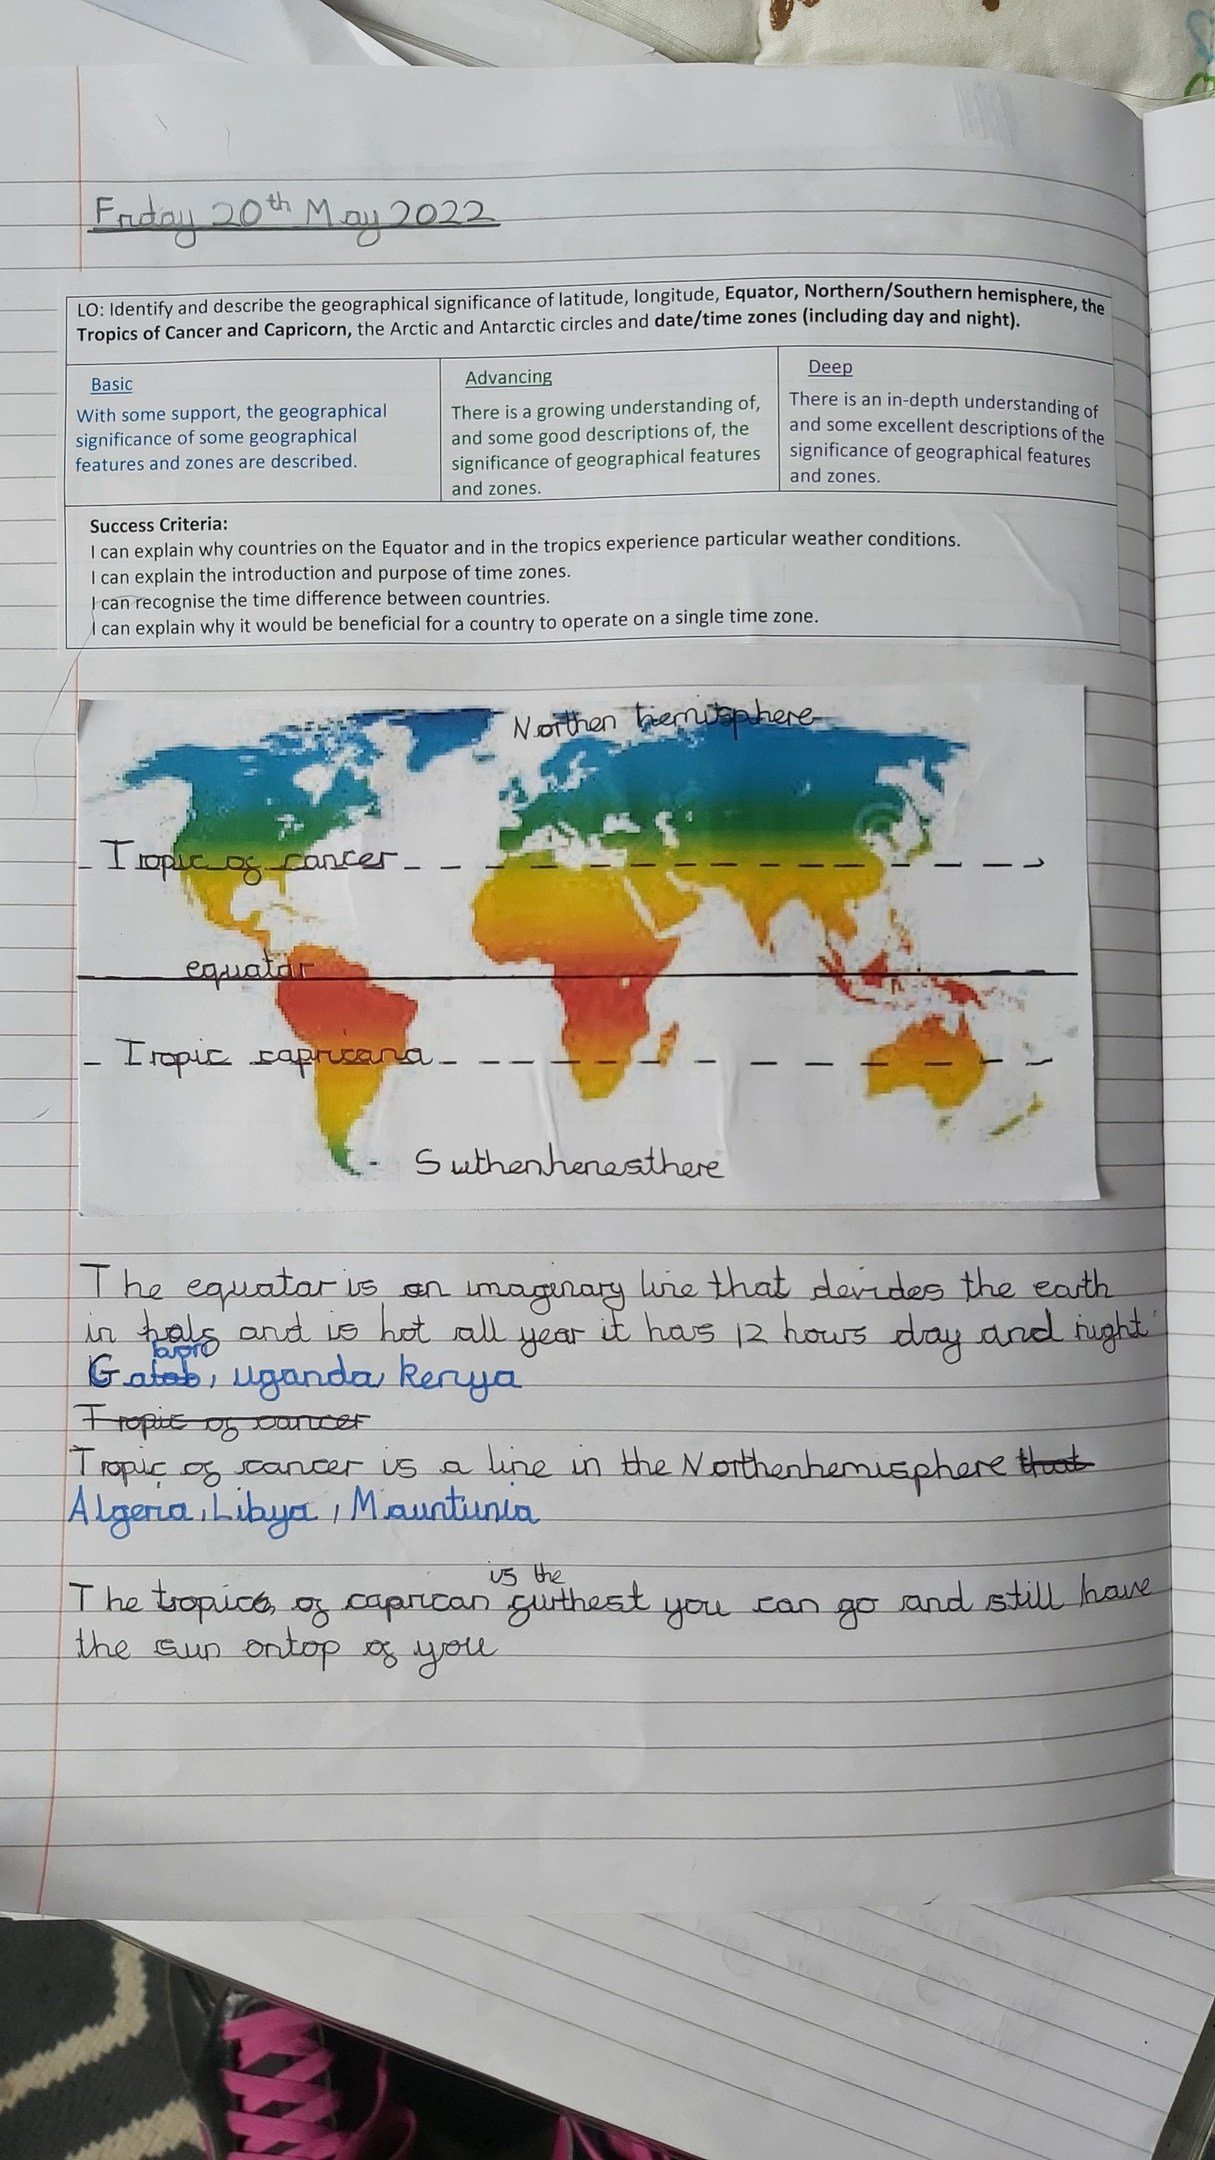 Friday 20th May 2022
LO: Identify and describe the geographical significance of latitude, longitude, Equator, Northern/Southern hemisphere, the
Tropics of Cancer and Capricorn, the Arctic and Antarctic circles and date/time zones (including day and night).
Basic
With some support, the geographical
significance of some geographical
features and zones are described.
Advancing
There is a growing understanding of,
and some good descriptions of, the
significance of geographical features
and zones.
Deep
There is an in-depth understanding of
and some excellent descriptions of the
significance of geographical features
and zones.
Success Criteria:
I can explain why countries on the Equator and in the tropics experience particular weather conditions.
I can explain the introduction and purpose of time zones.
I can recognise the time difference between countries.
I can explain why it would be beneficial for a country to operate on a single time zone.
Northen hemisphere
Tropic of cancer
equatar
Tropic capricana
Suthenhenesthere
The equatar is an imaginary line that devides the earth
in hals and is hot all year it has 12 hours day and night
uganda, kenya
Tropic of cancer
Tropic of cancer is a line in the Northenhemisphere that
Algeria, Libya, Mauntunia
is the
The tropics of caprican furthest you can go and still have
the sun ontop of you